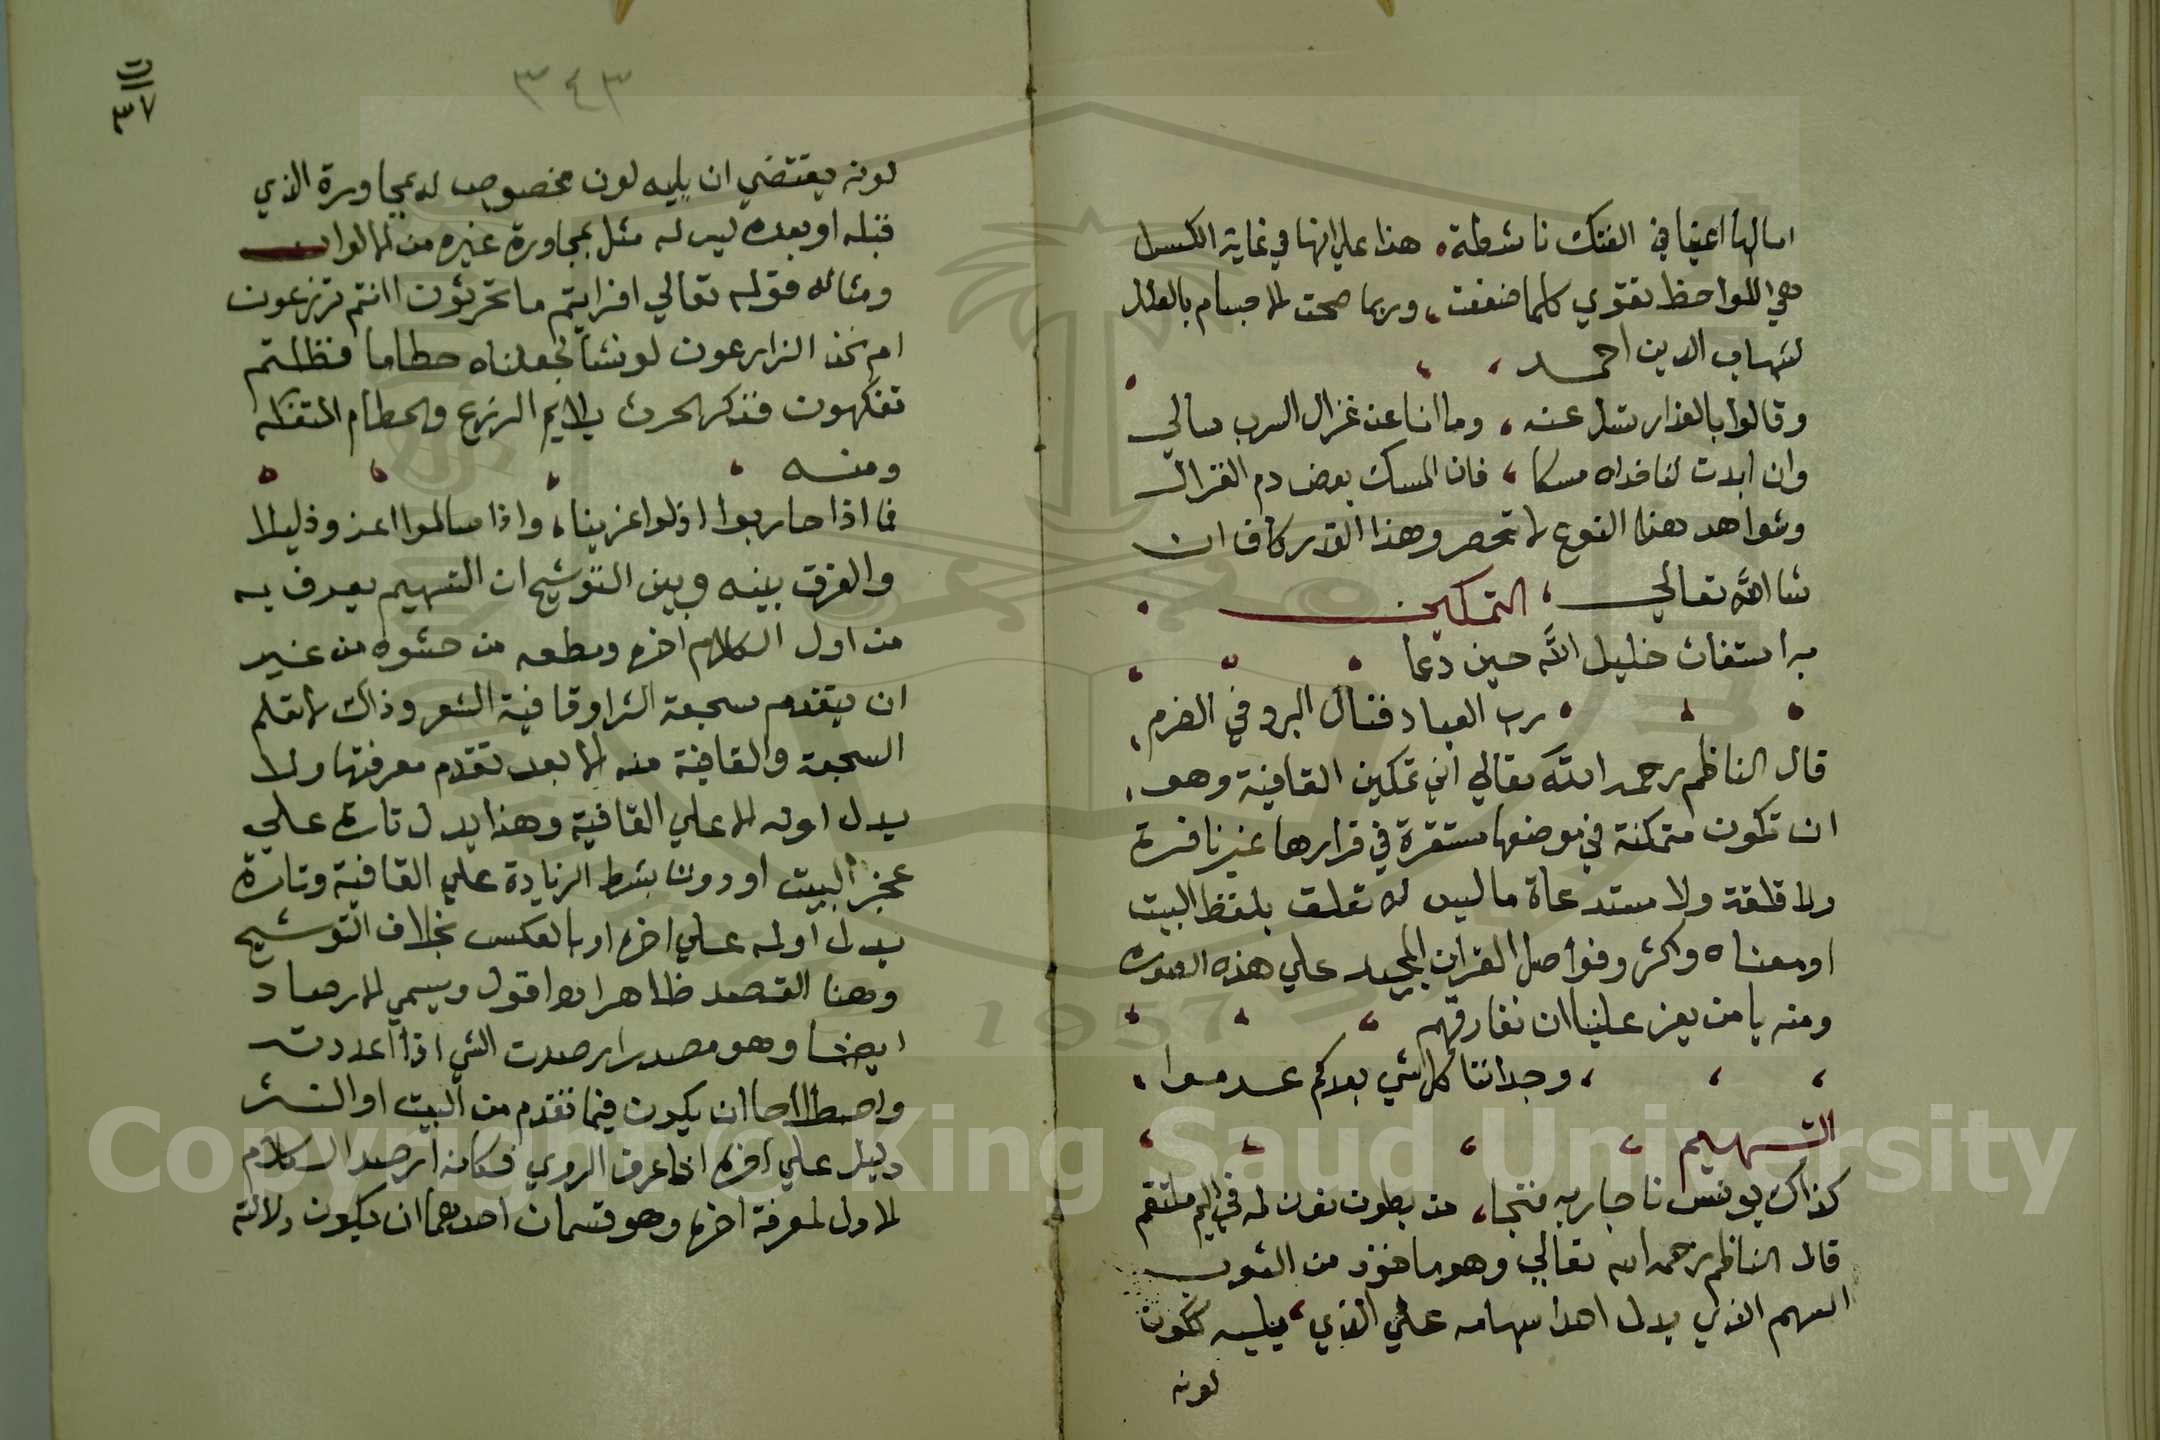 امالها اعينا في الفتك ناشطة، هذا علي انها في غاية الكسل
هي اللواحظ تقوي كلما ضعفت، وربما صحت الاجسام بالعلل
لشهاب الدين احمد
وقالوا بالعذار تسل عنه، وما انا عن غزال السرب سالي
وان ابدت لنا خداه مسكا، فان المسك بعض دم الغزال
وشواهد هذا النوع لا تحصر وهذا القدر كاف ان
شا الله تعالي، التمكين
به استغاث خليل الله حين دعا
رب العباد فنال البرد في الضرم،
قال الناظم رحمه الله تعالي اي تمكين القافية وهو،
ان تكون متمكنة في موضعها مستقرة في قرارها غير نافرة
ولا قلقة ولا مستدعاة ما ليس له تعلق بلفظ البيت
او معناه واكثر وفواصل القران المجيد علي هذه الصورة
ومنه يا من يعز علينا ان نفارقهم
، وجداننا كل شي بعدكم عدموا،
التسهيم
كذاك يونس ناجا ربه فنجا، من بطن نون له في اليم ملتقم
قال الناظم رحمه الله تعالي وهو ماخوذ من الثوب
المسهم الذي يدل احد اسهامه علي الذي يليه ككون
لونه
٣٤٣
ت
٣٧
لونه يقتضي ان يليه لون مخصوص له بمجاورة الذي
قبله او بعده ليس له مثل بمجاورة غيره من الالوان
ومثاله قوله تعالي افرايتم ما تحرثون اانتم تزرعون
ام نحن الزارعون لو نشا لجعلناه حطاما فظلتم
تفكهون فذكر الحرث يلايم الزرع والحطام التفكه
ومنه
فاذا حاربوا اذلوا عزيزا، واذا سالموا اعزوا ذليلا
والفرق بينه وبين التوشيح ان التسهيم يعرف به
من اول الكلام اخره ومطعه من حشوه من غير
ان يتقدم سجعة النثر او قافية الشعر وذلك لا تعلم
السجعة والقافية منه الا بعد تقدم معرفتها ولا
يدل اوله الا علي القافية وهذا يدل تارة علي
عجز البيت او دونه بشرط الزيادة علي القافية وتارة
يدل اوله علي اخره او بالعكس بخلاف التوشيح
وهنا القصد ظاهر اقول ويسمي الارصاد
ايضا وهو مصدر ارصدت الشي اذا اعددته
واصطلاحا ان يكون فيما تقدم من البيت او النثر
دليل علي اخره اذا عرف الروي فكانه ارصد الكلام
الاول لمعرفة اخره وهو قسمان احدهما ان يكون دلالته
Copyright © King Saud University
1957